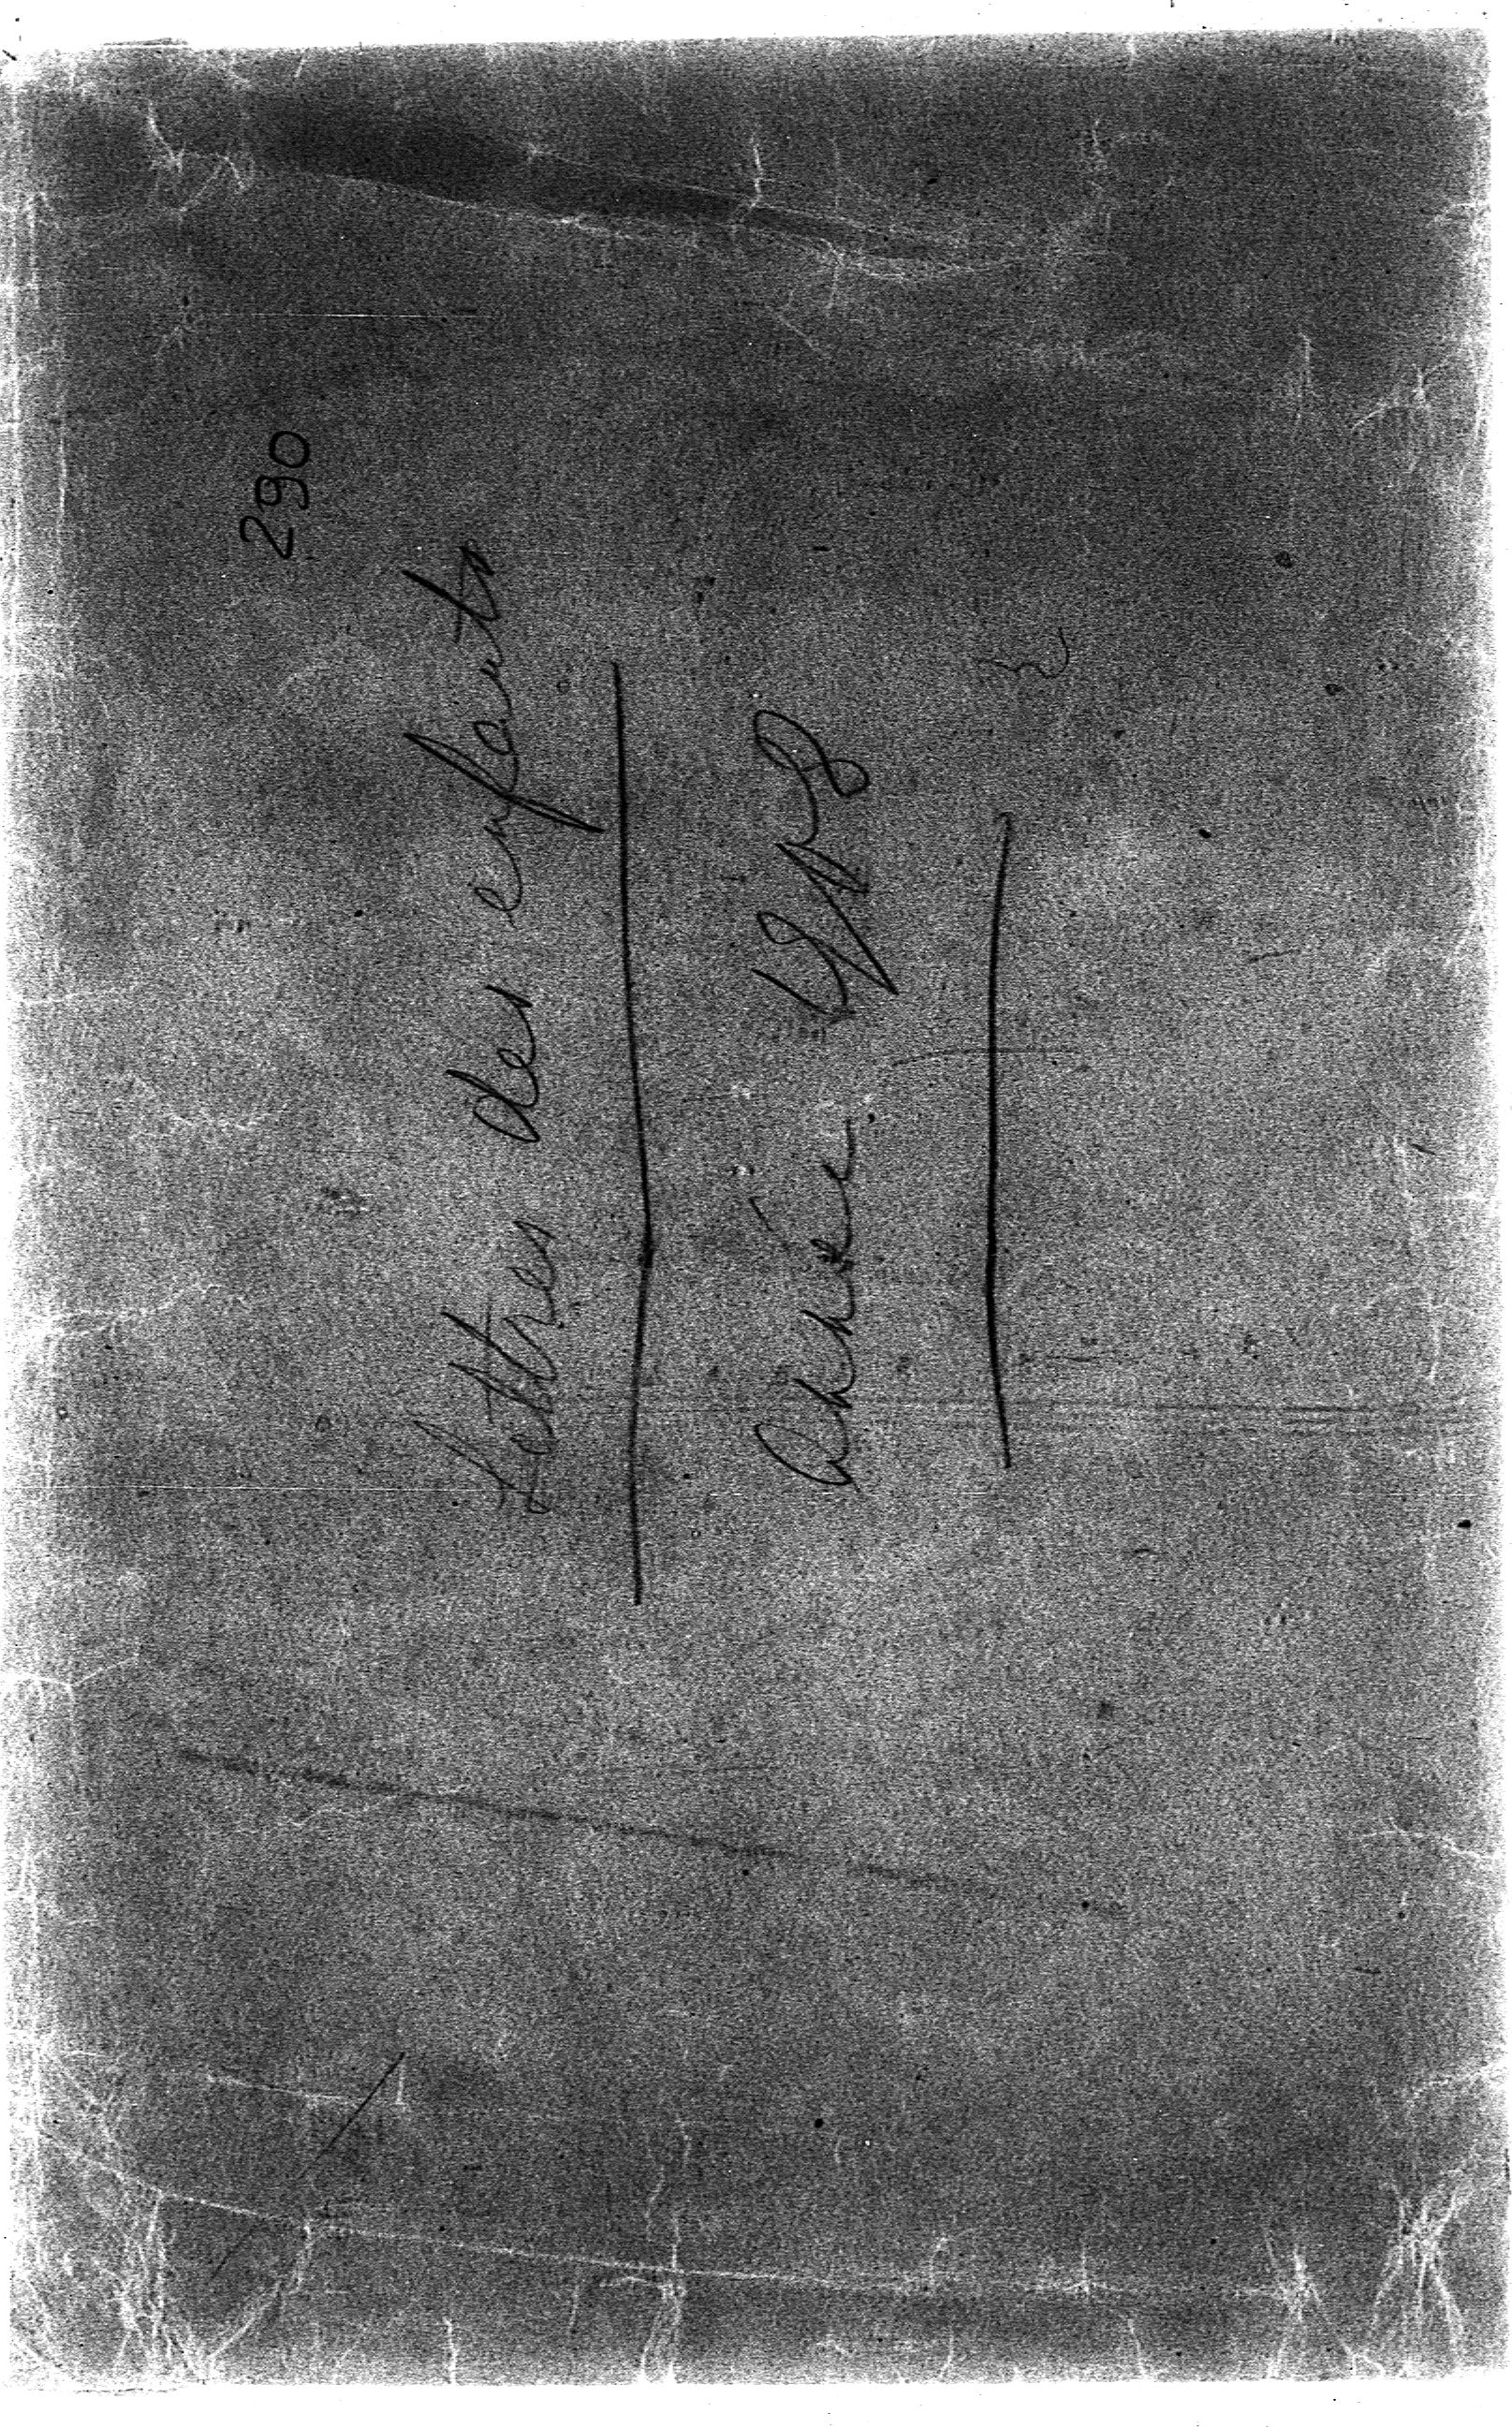 290
Lettres des enfants
Année